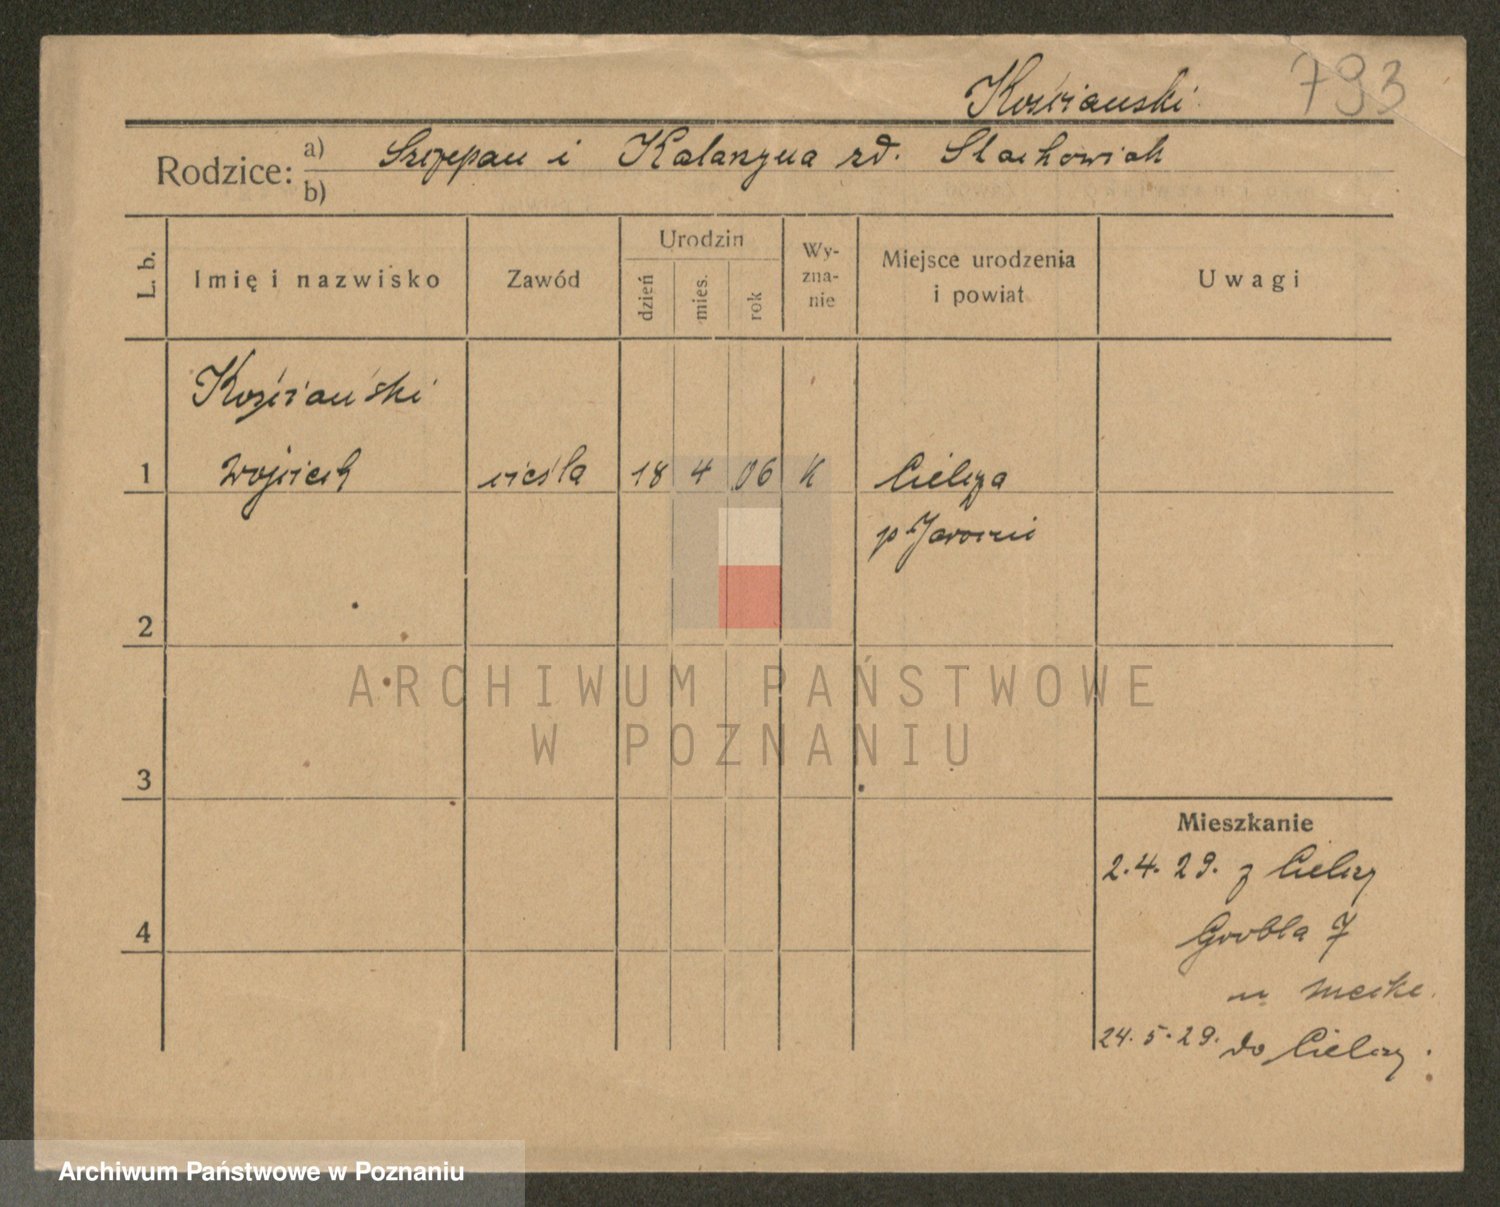 Kościański 793
Rodzice: a) Szczepan i Katarzyna zd. Stachowiak
b)
L. b. Imię i nazwisko Zawód Urodzin dzień mies. rok Wy-zna-nie Miejsce urodzenia i powiat Uwagi
Kościański
1 Wojciech cieśla 18 4 06 K Cielcza
p Jarocin
2
3
4
Mieszkanie
2.4.29. z Cielczy
Grobla 7
u
24.5.29. do Cielczy.
ARCHIWUM PAŃSTWOWE
W POZNANIU
Archiwum Państwowe w Poznaniu